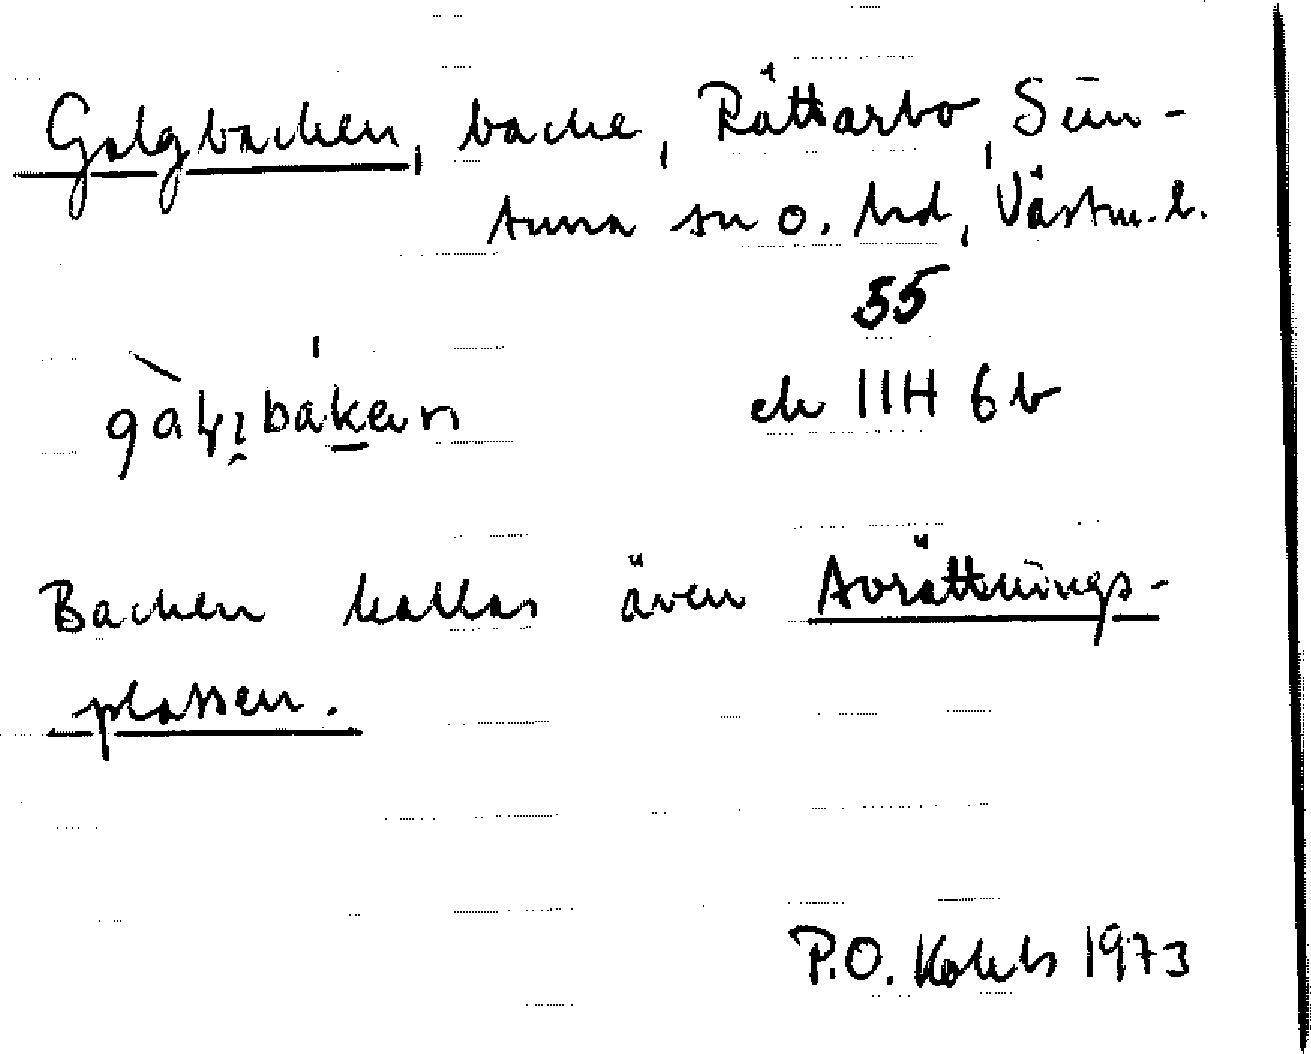 Galgbacken, backe, Rättarbo, Sim-
tuna sn o. hd, Västm. l.
55
ek 11H 6b
Backen kallas även Avrättnings-
platsen.
P.O. 1973